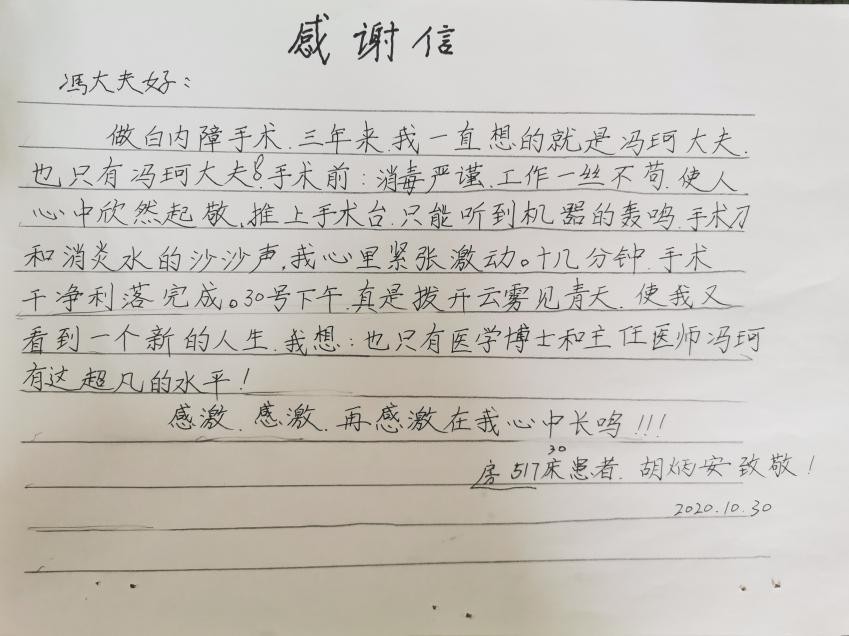 感谢信
冯大夫好：
做白内障手术.三年来.我一直想的就是冯珂大夫.
也只有冯珂大夫。手术前：消毒严谨.工作一丝不苟.使人
心中欣然起敬.推上手术台.只能听到机器的轰鸣.手术刀
和消炎水的沙沙声,我心里紧张激动。十几分钟.手术
干净利落完成。30号下午.真是拨开云雾见青天.使我又
看到一个新的人生.我想：也只有医学博士和主任医师冯珂
有这超凡的水平！
感激.感激.再感激在我心中长鸣!!!
房517 30床患者.胡炳安致敬！
2020.10.30